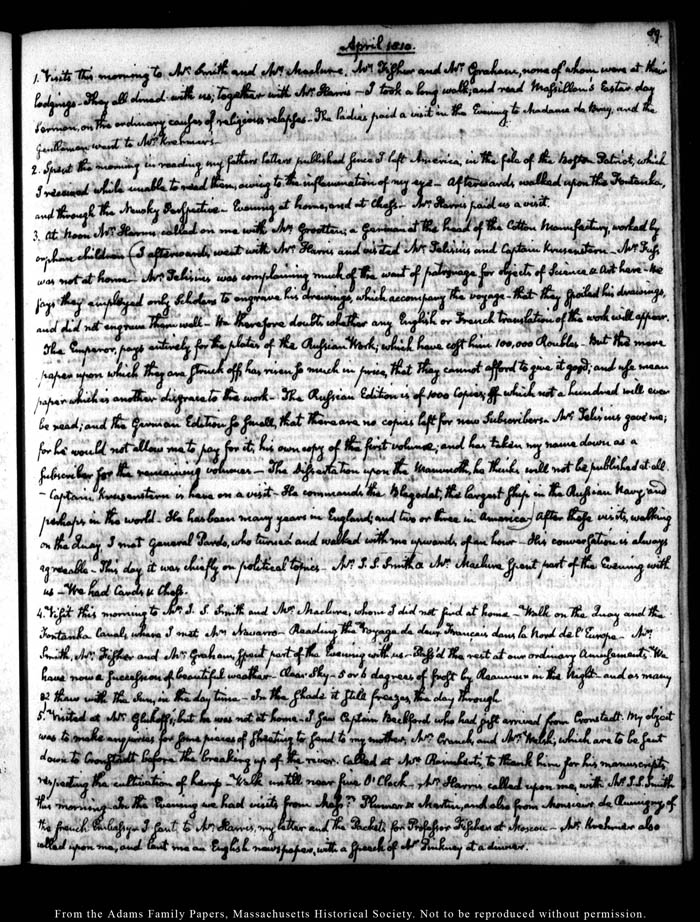 89.
April 1810.
1. Visits this morning to Mr. Smith and Mr. Maclure, Mr. Fisher and Mr. Graham, none of whom were at their
lodgings - They all dined with us; together with Mr. Harris - I took a long walk; and read Massillon's Easter day
Sermon, on the ordinary causes of religious relapses. The ladies paid a visit in the Evening to Madame de Bray, and the
gentlemen went to Mr. Krehmer's
2. Spent the morning in reading my father's letters published since I left America, in the file of the Boston Patriot, which
I received while unable to read them, owing to the inflammation of my eye - Afterwards walked upon the Fontanka,
and through the Newsky Perspective - Evening at home, and at Chess - Mr. Harris paid us a visit.
3. At Noon Mr. Harris called on me with Mr. Grooten; a German at the head of the Cotton Manufactury, worked by
orphan children I afterwards went with Mr. Harris and visited Mr. Tilesius and Captain Krusenstern - Mr. Fuss
was not at home - Mr. Tilesius was complaining much of the want of patronage for objects of Science & Art here - He
says they employed only Scholars to engrave his drawings, which accompany the voyage - that they spoiled his drawings,
and did not engrave them well - He therefore doubts whether any English or French translation of the work will appear.
The Emperor, pays entirely for the plates of the Russian Work; which have cost him 100,000 Roubles - But the mere
paper upon which they are struck off, has risen so much in price, that they cannot afford to give it good; and use mean
paper which is another disgrace to the work - The Russian Edition is of 1000 Copies; of which not a hundred will ever
be read; and the German Edition so small, that there are no copies left for new Subscribers - Mr. Tilesius gave me;
for he would not allow me to pay for it; his own copy of the first volume; and has taken my name down as a
Subscriber for the remaining volumes - The Dissertation upon the Mammoth, he thinks will not be published at all.
- Captain Krusenstern is here on a visit - He commands the Blagodat; the largest ship in the Russian Navy, and
perhaps in the world - He has been many years in England; and two or three in America - After these visits, walking
on the Quay I met General Pardo, who turned and walked with me upwards of an hour - His conversation is always
agreeable - This day it was chiefly on political topics - Mr. J. S. Smith & Mr. Maclure spent part of the Evening with
us - We had Cards & Chess.
4. Visit this morning to Mr. J. S. Smith and Mr. Maclure, whom I did not find at home - Walk on the Quay and the
Fontanka Canal, where I met Mr. Navarro - Reading the Voyage de deux Francais dans le Nord de l'Europe - Mr.
Smith, Mr. Fisher and Mr. Graham, spent part of the Evening with us - Pass'd the rest at our ordinary Amusements. We
have now a succession of beautiful weather - Clear Sky - 5 or 6 degrees of frost by Reaumur in the Night - and as many
of thaw with the Sun, in the day time - In the Shade it still freezes, the day through
5. Visited at Mr. Glukoff's; but he was not at home - I saw Captain Beckford who had just arrived from Cronstadt. My object
was to make enquiries for some pieces of Sheeting to send to my mother, Mrs. Cranch, and Mrs. Welsh, which are to be sent
down to Cronstadt before the breaking up of the river. Called at Mr. Reimbert's, to thank him for his manuscripts,
respecting the cultivation of hemp - Walk untill near five O'Clock - Mr. Harris called upon me, with Mr. J. S. Smith
this morning. In the Evening we had visits from Messrs. Plummer & Martin, and also from Monsieur de Rumigny, of
the french Embassy - I sent, to Mr. Harris, my letter and the Packets for Professor Fischer at Moscow - Mr. Krehmer also
called upon me, and lent me an English newspaper, with a Speech of Mr. Pinkney at a dinner.
From the Adams Family Papers, Massachusetts Historical Society. Not to be reproduced without permission.